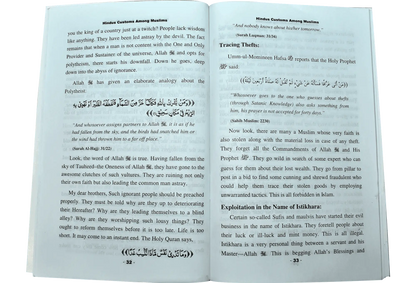 Hindus Customs Among Muslims
you the king of a country just at a twitch? People lack wisdom
like anything. They have been led astray by the devil. The fact
remains that when a man is not content with the One and Only
Provider and Sustainer of the universe, Allah ﷻ and opts for
polytheism, there starts his downfall. Down he goes, deep
down into the abyss of ignorance.
Allah ﷻ has given an elaborate analogy about the
Polytheist:
وَمَن يُشْرِكْ بِاللَّهِ فَكَأَنَّمَا خَرَّ مِنَ السَّمَاءِ فَتَخْطَفُهُ الطَّيْرُ أَوْ تَهْوِي بِهِ
الرِّيحُ فِي مَكَانٍ سَحِيقٍ
"And whoever assigns partners to Allah ﷻ, it is as if he
had fallen from the sky, and the birds had snatched him or
the wind had thrown him to a far off place."
(Surah Al-Hajj: 31/22)
Look, the word of Allah ﷻ is true. Having fallen from the
sky of Tauheed-the Oneness of Allah ﷻ, they have gone to the
awesome clutches of such vultures. They are ruining not only
their own faith but also leading the common man astray.
My dear brothers, Such ignorant people should be preached
properly. They must be told why are they up to deteriorating
their Hereafter? Why are they leading themselves to a blind
alley? Why are they worshipping such lousy things? They
ought to reform themselves before it is too late. Life is too
short. It may come to an instant end. The Holy Quran says,
وَمَا تَدْرِي نَفْسٌ مَّاذَا تَكْسِبُ غَدًا
32
Hindus Customs Among Muslims
"And nobody knows about his/her tomorrow."
(Surah Luqman: 31/34)
Tracing Thefts:
Umm-ul-Momineen Hafsa reports that the Holy Prophet
ﷺ said:
"Whosoever goes to the one who guesses about thefts
(through Satanic Knowledge) and asks something from
him, his prayer is not accepted for forty days."
(Sahih Muslim: 2230)
Now look, there are many a Muslim whose very faith is
also stolen along with the material loss in case of any theft.
They forget all the Commandments of Allah ﷻ and His
Prophet ﷺ. They go wild in search of some expert who can
guess for them about their lost wealth. They go from pillar to
post in a bid to find some canning and shrewd fraudulent who
could help them trace their stolen goods by employing
unwarranted tactics. This is all forbidden in Islam.
Exploitation in the Name of Istikhara:
Certain so-called Sufis and maulvis have started their evil
business in the name of Istikhara. They foretell people about
their luck or ill-luck and mint money. This is all illegal.
Istikhara is a very personal thing between a servant and his
Master—Allah ﷻ. This is begging Allah's Blessings and
33